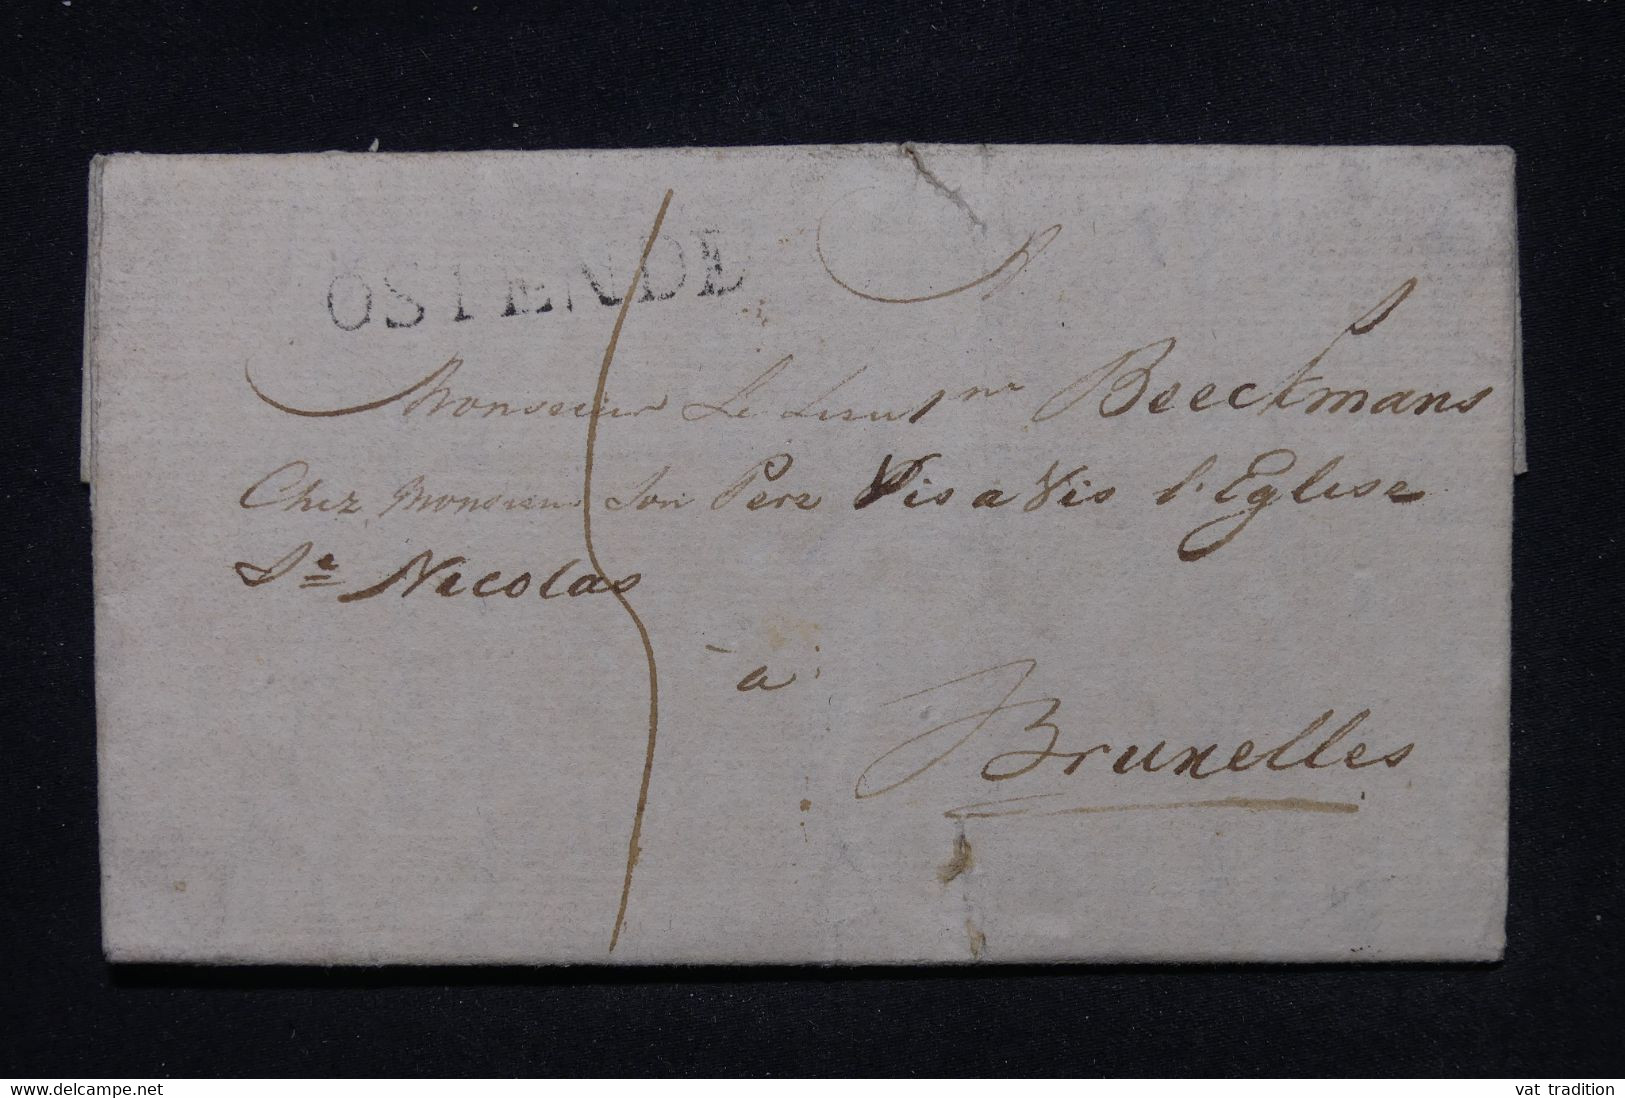 OSTENDE
Monsieur Le Lieut Beeckmans
Chez Monsieur Son Pere Vis a Vis l'Eglise
St Nicolas
à
Bruxelles
© delcampe.net
vat_tradition